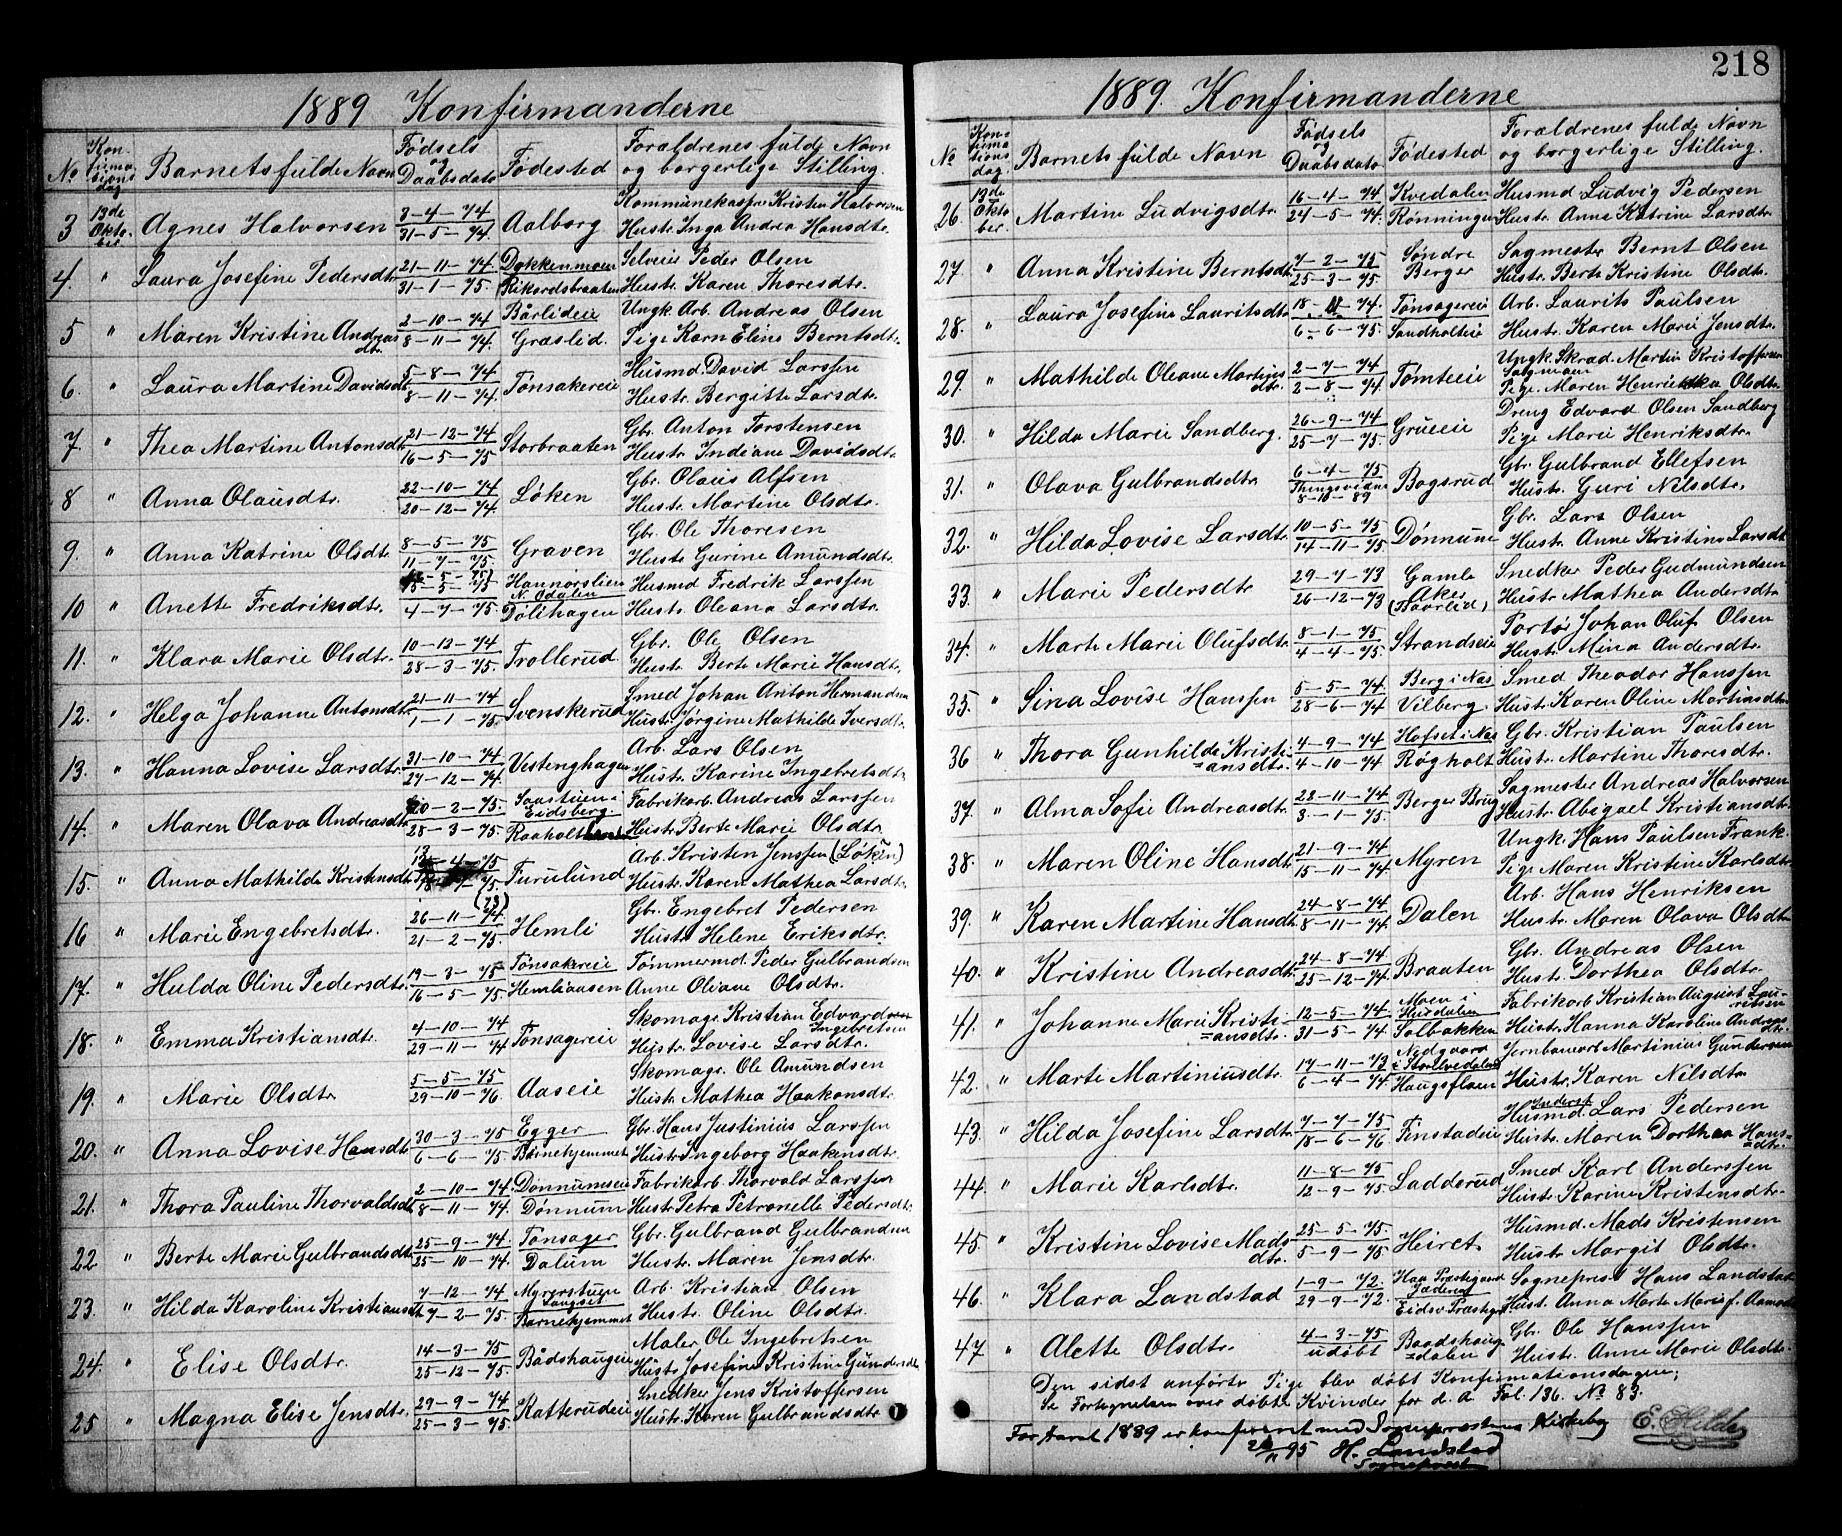 218
1889 Konfirmanderne
No Konfirmasionsdag Barnets fulde Navn Fødsels og Daabsdato Fødested Forældrenes fulde Navn og borgerlige Stilling.
3 13de Oktober Agnes Halvorsen 3-4-74 31-5-74. Aalborg Kommunekasser Kristen Halvorsen Hustr. Inga Andrea Hansdtr.
4. " Laura Josefine Pedersdtr 21-11-74 31-1-75. Dokkenmoen Rikardsbraaten Selveier Peder Olsen Hustr. Karen Thoresdtr.
5 " Maren Kristine Andreasdtr. 2-10-74 8-11-74. Bårlideie Græslid. Ungk. Arb. Andreas Olsen Pige Karn Eline Berntsdtr.
6. " Laura Martine Davidsdt 5-8-74 8-11-74. Tønsakereie Husmd. David Larssen Hustr. Bergitte Larsdtr.
7. " Thea Martine Antonsdtr 21-12-74 16-5-75 Storbraaten Gbr. Anton Torstensen Hustr. Indiane Davidsdtr.
8 " Anna Olausdtr. 22-10-74 20-12-74. Løken Gbr. Olaus Alfsen Hustr. Martine Olsdtr.
9. " Anna Katrine Olsdtr 8-5-75 11-7-75. Graven Gbr. Ole Thoresen Hustr. Gurine Amundsdtr.
10 " Anette Fredriksdtr. 15-5-75 4-7-75. Hannørslien N. Odalen Dølihagen Husmd Fredrik Larssen Hustr. Oleana Larsdtr.
11. " Klara Marie Olsdtr. 10-12-74 28-3-75. Trollerud. Gbr. Ole Olsen Hustr. Berte Marie Hansdtr.
12. " Helga Johanne Antonsdtr 21-11-74 1-1-75. Svenskerud Smed Johan Anton Hermandsen Hustr. Jørgine Mathilde Iversdtr.
13. " Hanna Lovise Larsdtr. 31-10-74 27-12-74. Vestenghagen Arb. Lars Olsen Hustr. Karine Ingebretsdtr
14. " Maren Olava Andreasdtr 20-2-75. 28-3-75. Saastuen i Eidsberg. Raaholt Fabrikarb. Andreas Larssen Hustr. Berte Marie Olsdtr.
15. " Anna Mathilde Kristensdtr 4-75 75. Furulund Arb. Kristen Jenssen (Løken) Hustr. Karen Mathea Larsdtr.
16 " Marie Engebretsdtr. (73) 26-11-74. 21-2-75. Hemli Gbr. Engebret Pedersen Hustr Helene Eriksdtr.
17. " Hulda Oline Pedersdtr. 19-3-75 16-5-75. Tønsakereie Hemliaasen Tømmermd. Peder Gulbrandsen Anne Oleane Olsdtr.
18. " Emma Kristiansdtr. 4-10-74 29-11-74 Tønsagereie Skomager Kristian Edvard Ingebretsen Hustr. Lovise Larsdtr.
19. " Marie Olsdtr. 5-5-75 29-10-76. Aaseie Skomager. Ole Amundsen Hustr. Mathea Haakonsdtr.
20. " Anna Lovise Hansdtr 30-3-75 6-6-75. Egger Barnehjemmet Gbr. Hans Justinius Larssen Hustr. Ingeborg Haakensdtr.
21. " Thora Pauline Thorvaldsdtr 2-10-74. 8-11-74. Dønnumseie Dønnum Fabrikarb. Thorvald Larssen Hustr. Petra Petronelle Pedersdtr
22 " Berte Marie Gulbrandsdtr 25-9-74. 25-10-74. Tønsager Dalum Gbr. Gulbrand Gulbrandsen Hustr. Maren Jensdtr.
23. " Hilda Karoline Kristiansdt 7-12-74 7-2-75. Myrerstuen Langset Barnehjemmet Arb. Kristian Olsen Hustr. Oline Olsdtr.
24. " Elise Olsdtr. 14-3-75 25-12-75. Bådshaugeie Maler Ole Ingebretsen Hustr. Josefine Kristine Gundersdtr
25 " Magna Elise Jensdtr. 29-9-74 25-3-75. Katterudeie Snedker Jens Kristoffersen Hustr. Karen Gulbrandsdtr
1889. Konfirmanderne
No Konfirmationsdag Barnets fulde Navn Fødsels og Daabsdato Fødested Forældrenes fulde Navn og borgerlige Stilling.
26. 13de Oktober Martine Ludvigsdtr. 16-4-74 24-5-74. Kvedalen Rønningen Husmd Ludvig Pedersen Hustr. Anne Katrine Larsdtr.
27. " Anna Kristine Berntsdtr 7-2-75 25-3-75. Søndre Berger Sagmester Bernt Olsen Hustr. Berte Kristine Olsdtr.
28. " Laura Josefine Lauritsdtr 18-11-74. 6-6-75. Tønsagereie Sandholteie Arb. Laurits Paulsen Hustr. Karen Marie Jensdtr.
29. " Mathilde Oleane Martinsdtr. 2-7-74 2-8-74. Tømteeie Ungk. Skrad. Martin Kristoffersen Pige. Maren Henrikka Olsdtr.
30. " Hilda Marie Sandberg. 26-9-74 25-7-75. Grueeie Dreng Edvard Olsen Sandberg Pige Marie Henriksdtr.
31. " Olava Gulbrandsdtr 6-4-75 8-10-89 Bogsrud Gbr. Gulbrand Ellefsen Hustr. Guri Nilsdtr.
32. " Hilda Lovise Larsdtr. 10-5-75 14-11-75 Dønnum Gbr. Lars Olsen Hustr. Anne Kristine Larsdtr
33. " Marie Pedersdtr 29-7-73 26-12-73 Gamle Aker Snedker Peder Gudmundsen Hustr. Mathea Andersdtr.
34. " Marte Marie Olufsdtr. 8-1-75 4-4-75. Strandseie Portør Johan Oluf Olsen Hustr. Mina Andersdtr.
35. " Sina Lovise Hanssen 5-5-74 28-6-74 Berg i Nes Vilberg. Smed Theodor Hanssen Hustr. Karen Oline Martinsdtr.
36 " Thora Gunhilde Kristiansdtr. 4-9-74 4-10-74 Hofset i Nes Røgholt Gbr. Kristian Paulsen Hustr. Martine Thoresdtr.
37. " Alma Sofie Andreasdtr. 28-11-74 3-1-75. Berger Brug Sagmester Andreas Halvorsen Hustr. Abigael Kristiansdtr.
38. " Maren Oline Hansdtr. 21-9-74 15-11-74 Myren Ungk. Hans Paulsen Frank. Pige Maren Kristine Karlsdtr.
39. " Karen Martine Hansdtr. 24-8-74 8-11-74. Dalen Arb. Hans Henriksen Hustr. Maren Olava Olsdtr
40. " Kristine Andreasdtr. 24-8-74 25-12-74. Braaten Gbr. Andreas Olsen Hustr. Dorthea Olsdtr.
41. " Johanne Marie Kristiansdtr. 12-5-74 31-5-74 Moen i Hurdalen Solbakken Fabrikarb Kristian August Lauritsen Hustr. Hanna Karoline Andreasdtr.
42. " Marte Martiniusdtr. 17-11-73 6-4-74 Nedgaard i Storelvedalen Haugsfloen Jernbanearb Martinius Gundersen Hustr. Karen Nilsdtr.
43. " Hilda Josefine Larsdtr. 7-7-75 18-6-76 Finstadeie Inderst Husmd. Lars Pedersen Hustr. Maren Dorthea Hansdtr.
44. " Marie Karlsdtr. 11-8-75 12-9-75. Ladderud Smed Karl Anderssen Hustr. Karine Kristensdtr.
45. " Kristine Lovise Madsdtr. 25-5-75. 5-9-75. Heiret. Husmd. Mads Kristensen Hustr. Margit Olsdtr.
46. " Klara Landstad 1-9-72. 29-9-72. Haa Præstegaard Jæderen Eidsv. Præstegd Sognepræst Hans Landstad Hust. Anna Marte Marie f. Aamodt
47 " Alette Olsdtr. 4-3-75 udøbt Baadshaugdalen Gbr. Ole Hanssen Hustr. Anne Marie Olsdtr.
Den sidst anførte Pige blev døbt Konfirmationsdagen;
Se Fortegnelsen over døbte Kvinder for d. A. Fol. 136. No 83.
For Aaret 1889 er konfereret med Sognepræstens Kirkebog E. Hilde
95 H. Landstad
Sognepræst